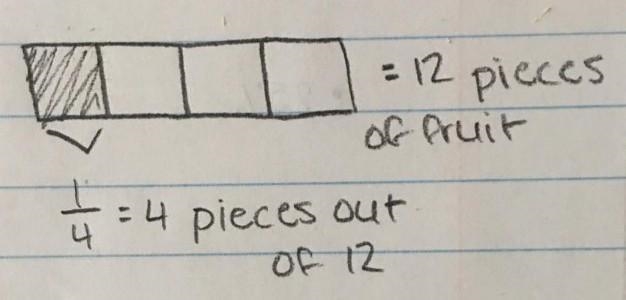 = 12 pieces
of fruit
1/4 = 4 pieces out
of 12